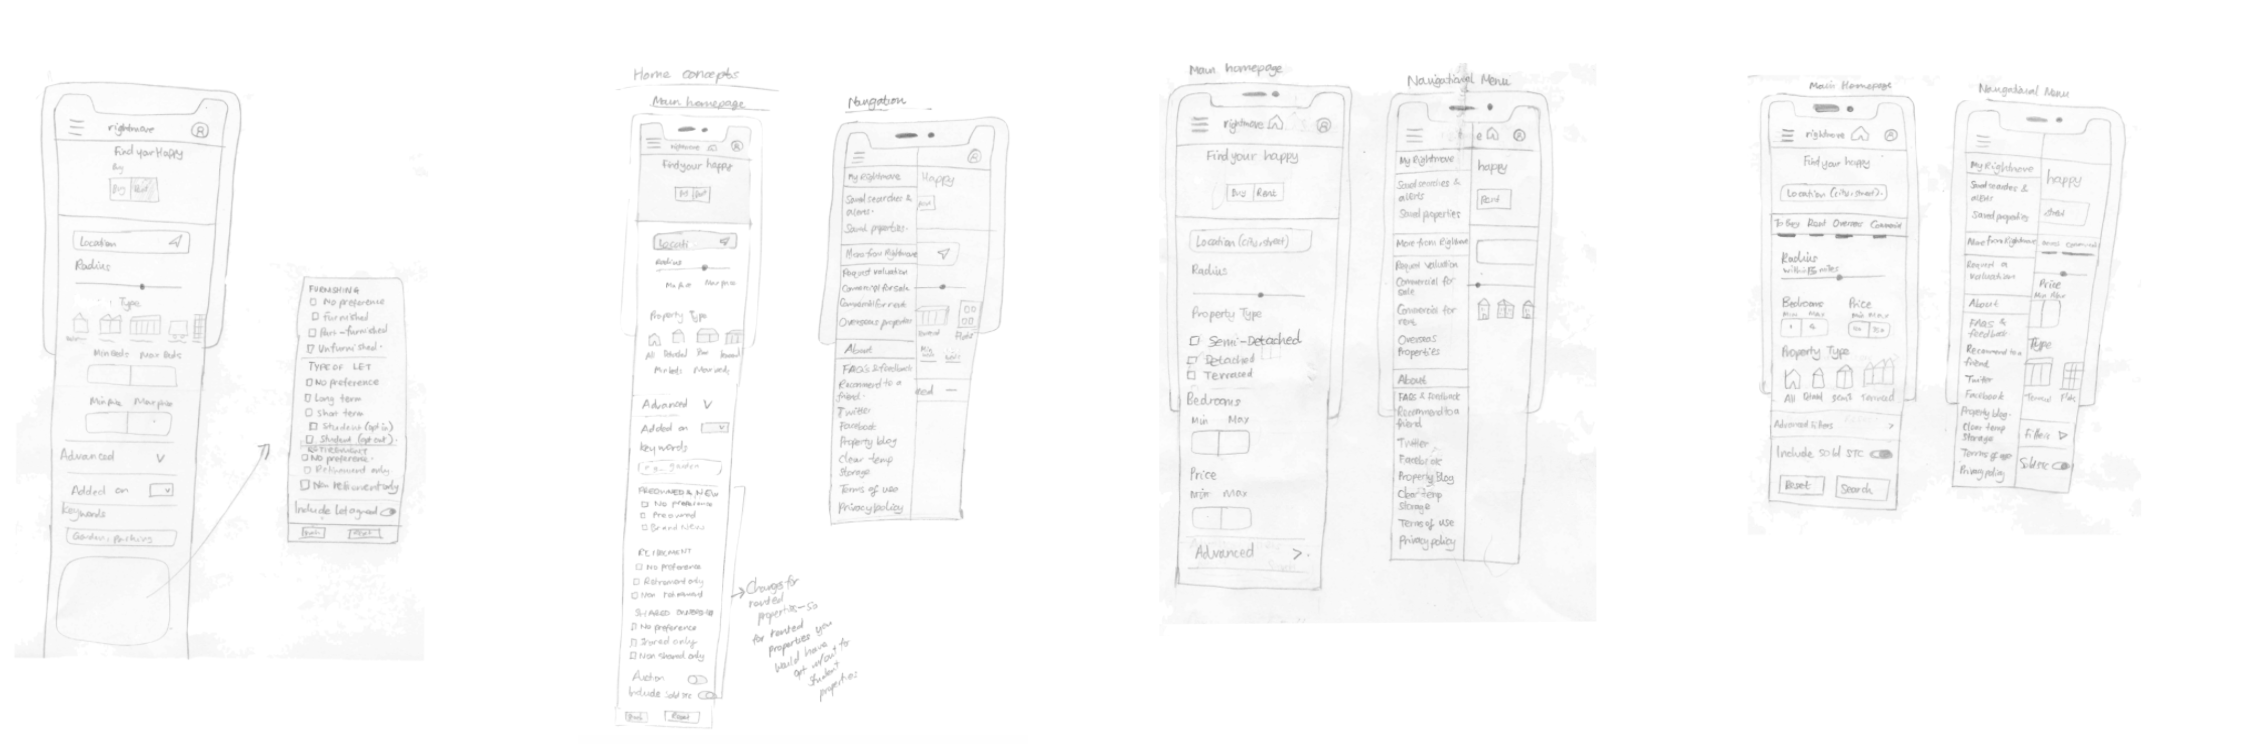 rightmove
Find your Happy
Buy
Buy Rent
Location
Radius
Type
Min Beds Max Beds
Min price Max price
Advanced
Added on
Keywords
Garden, parking
FURNISHING
No preference
Furnished
Part-furnished
Unfurnished
TYPE OF LET
No preference
Long term
Short term
Student (opt in)
Student (opt out)
RETIREMENT
No preference
Retirement only
Non retirement only
Include Let agreed
Reset
Home concepts
Main homepage
rightmove
Find your happy
Location
Radius
Min price Max price
Property Type
All Detached
Min beds Max beds
Advanced
Added on
keywords
e.g. garden
PREOWNED & NEW
No preference
Preowned
Brand New
RETIREMENT
No preference
Retirement only
Non retirement
SHARED OWNERSHIP
No preference
Shared only
Non shared only
Auction
Include Sold STC
Reset
Changes for
rented
properties - so
for rented
Properties you
would have
opt in/out for
student
properties
Navigation
My Rightmove
Happy
Saved searches &
alerts
Saved properties
More from Rightmove
Request valuation
Commercial for sale
Commercial for rent
Overseas properties
About
FAQs & feedback
Recommend to a
friend
Twitter
Facebook
Property blog
Clear temp
Storage
Terms of use
Privacy policy
Main homepage
rightmove
Find your happy
Buy Rent
Location (city, street)
Radius
Property Type
Semi-Detached
Detached
Terraced
Bedrooms
Min Max
Price
Min Max
Advanced
Navigational Menu
e
My Rightmove
happy
Saved searches &
alerts
Rent
Saved properties
More from Rightmove
Request Valuation
Commercial for
Sale
Commercial for
rent
Overseas
Properties
About
FAQs & Feedback
Recommend to a
friend
Twitter
Facebook
Property Blog
Clear temp
Storage
Terms of use
Privacy policy
Main Homepage
rightmove
Find your happy
Location (city, street)
To Buy Rent Overseas Commercial
Radius
within 15 miles
Bedrooms Price
Min Max Min Max
Property Type
All Detached Semi Terraced
Advanced Filters
Include Sold STC
Reset Search
Navigational Menu
My Rightmove
happy
Saved searches &
alerts
Saved properties
More from Rightmove
Request a
valuation
Price
Min Max
About
FAQs &
feedback
Type
Recommend to a
friend
Twitter
Facebook
Property blog
Clear temp
Storage
Filters
Terms of use
Sold STC
Privacy policy